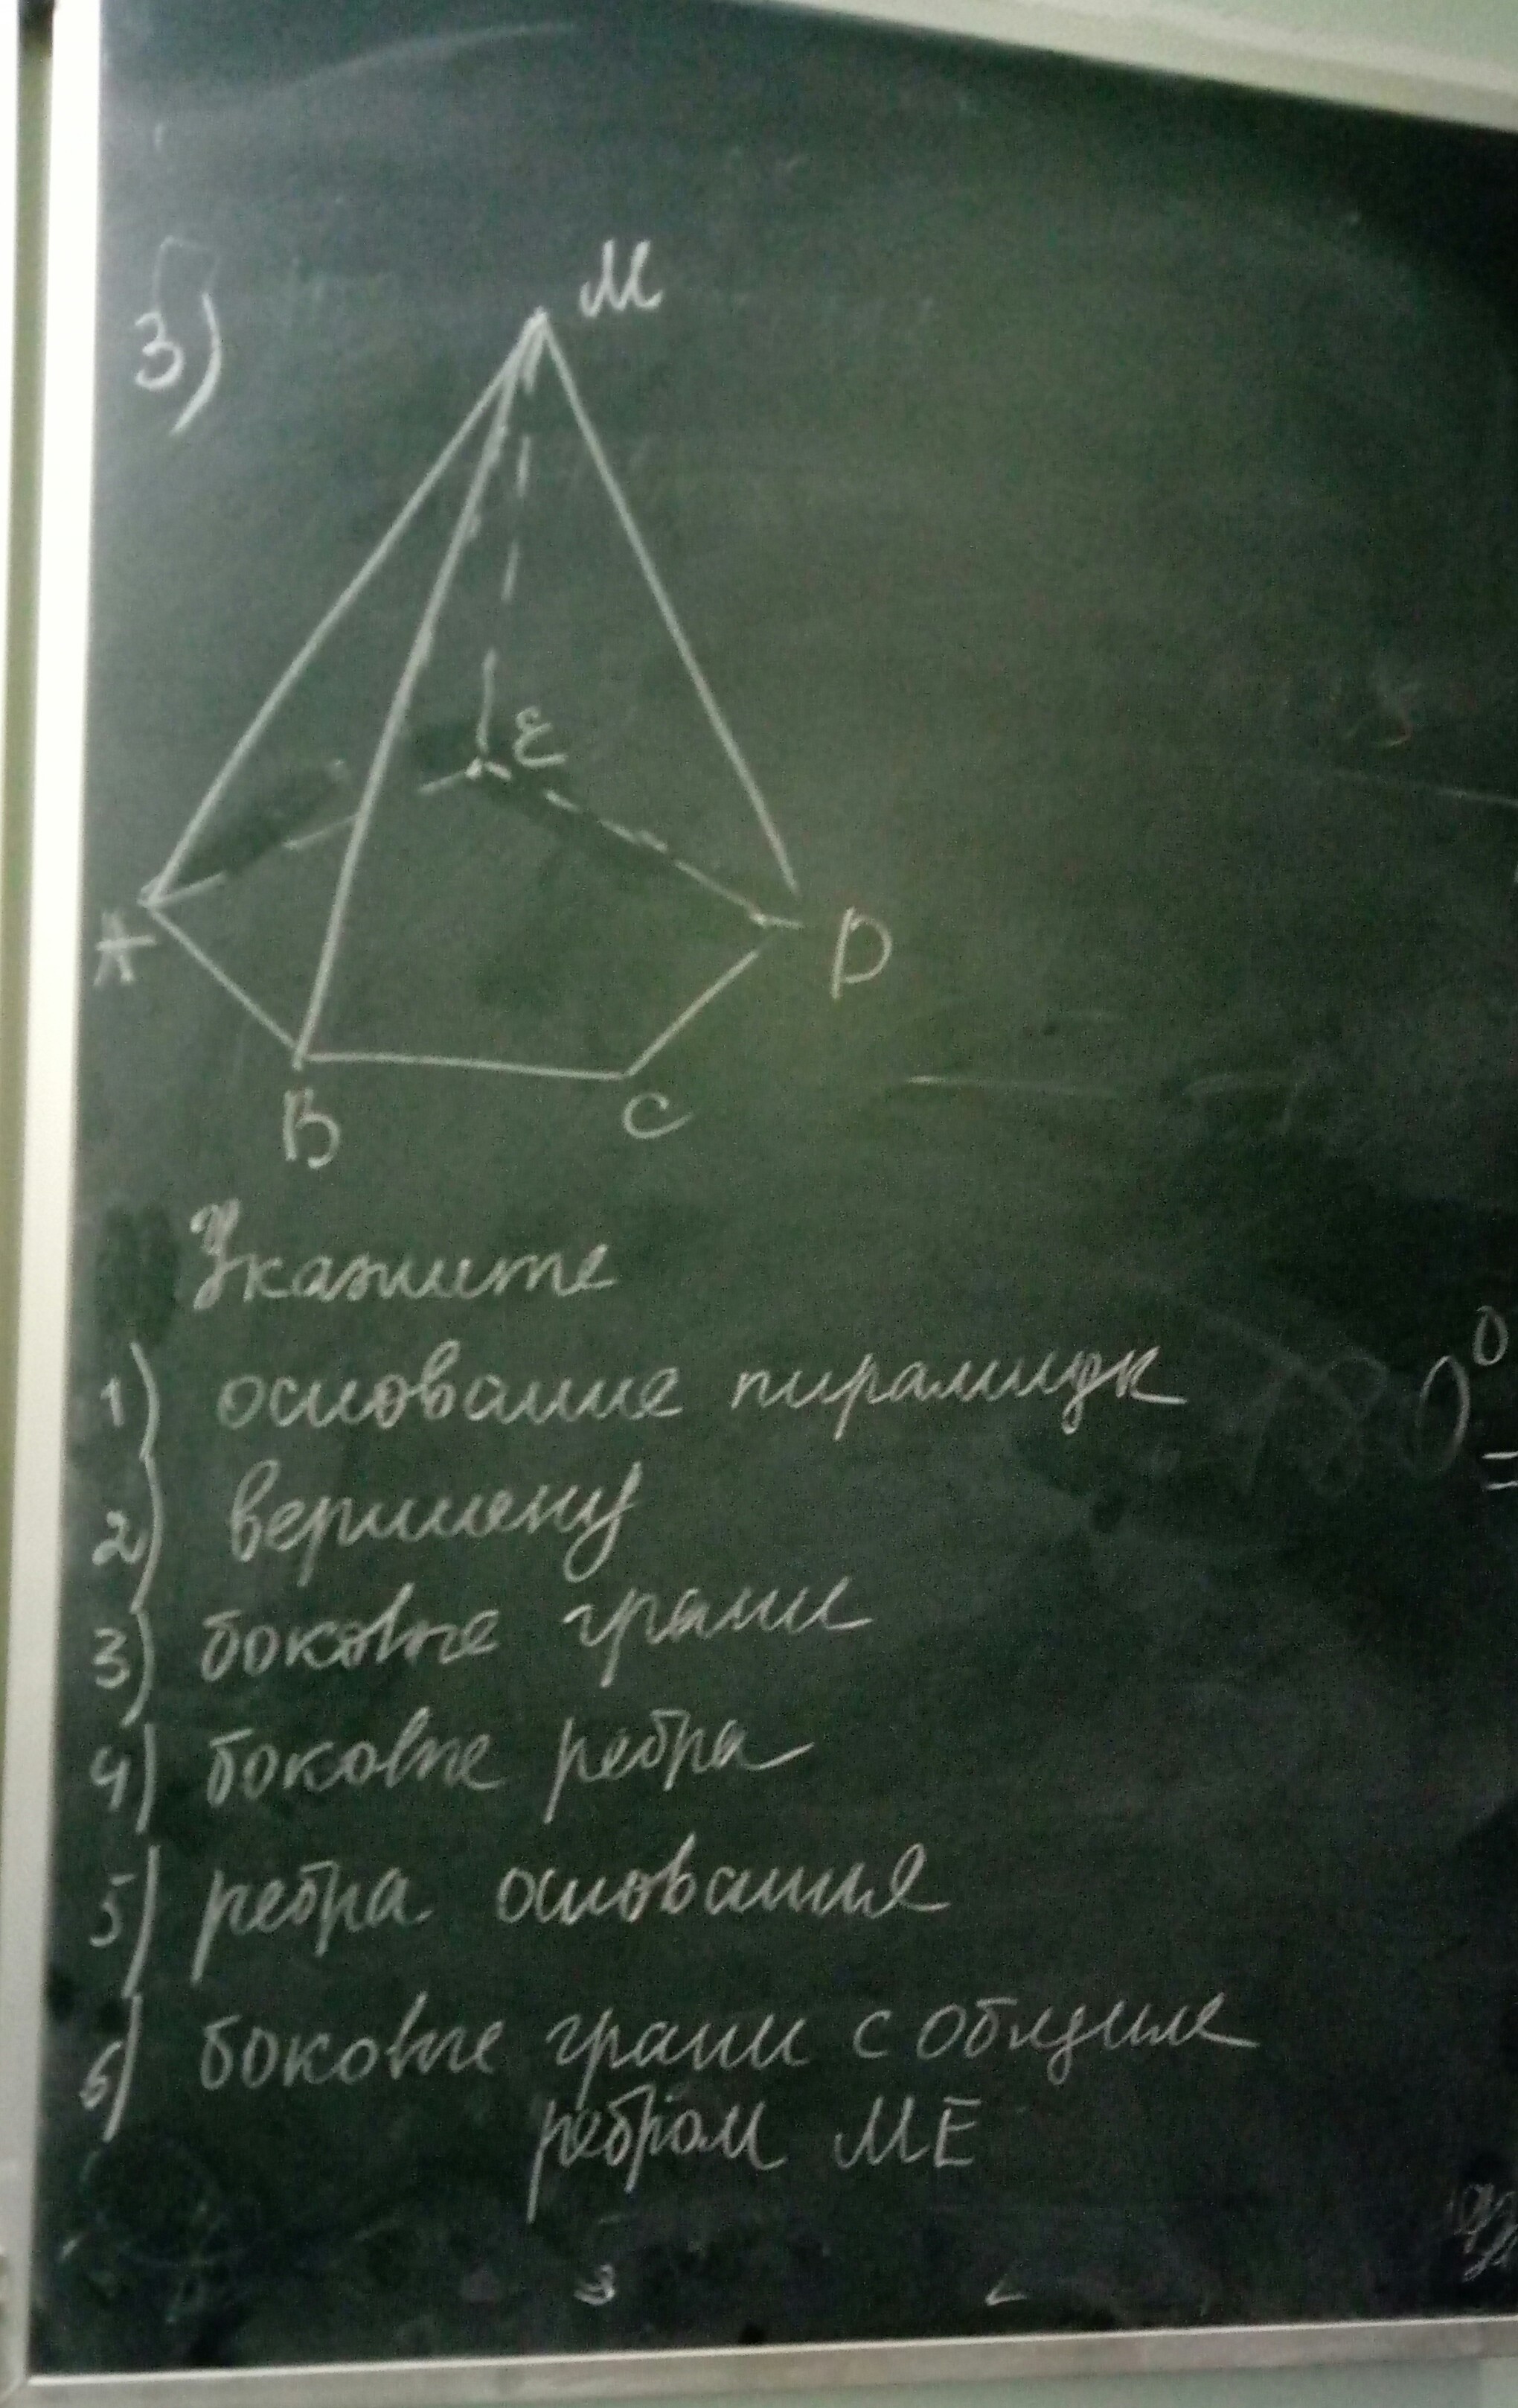 3)
М
Е
А
D
В
С
Укажите
1) основание пирамиды
2) вершину
3) боковые грани
4) боковые ребра
5) ребра основания
6) боковые грани с общим
ребром МЕ
180°
=